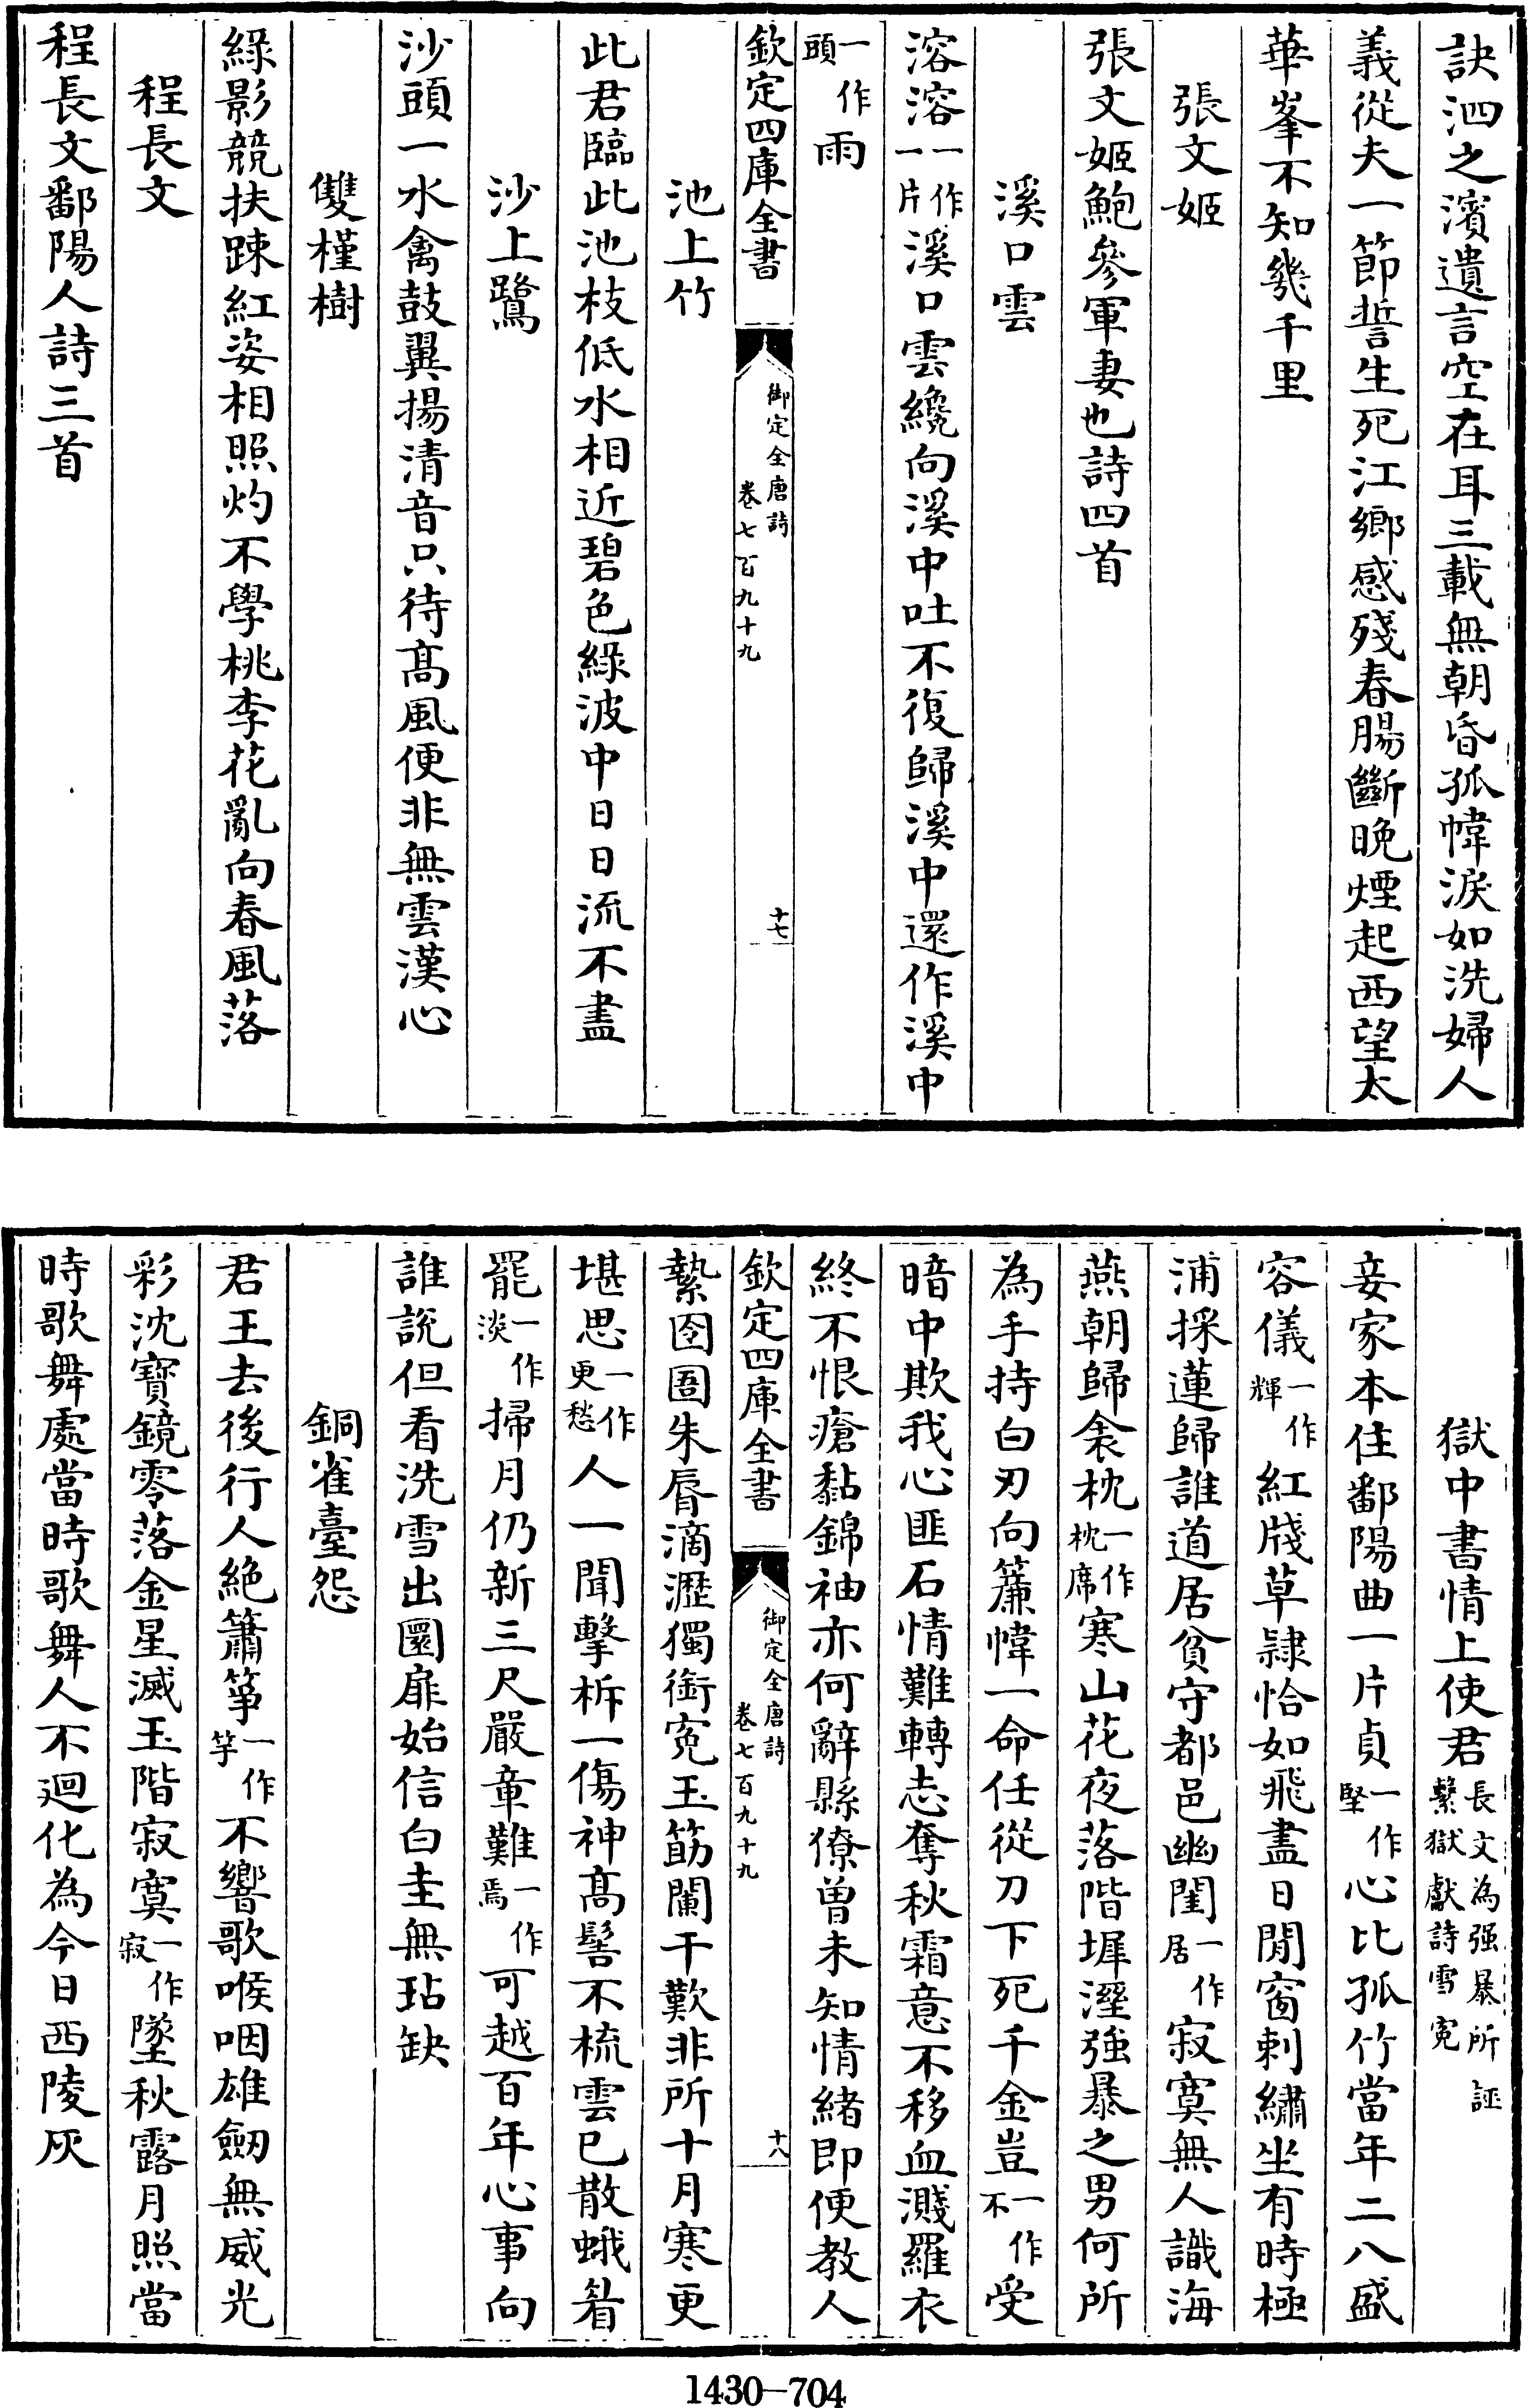 訣泗之濱遺言空在耳三載無朝昏孤幃淚如洗婦人
義從夫一節誓生死江鄉感殘春腸斷晚煙起西望太
華峯不知幾千里
張文姬
張文姬鮑參軍妻也詩四首
溪口雲
溶溶一一作片溪口雲纔向溪中吐不復歸溪中還作溪中
一作頭雨
欽定四庫全書 御定全唐詩卷七百九十九 十七
池上竹
此君臨此池枝低水相近碧色綠波中日日流不盡
沙上鷺
沙頭一水禽鼓翼揚清音只待高風便非無雲漢心
雙槿樹
綠影競扶踈紅姿相照灼不學桃李花亂向春風落
程長文
程長文鄱陽人詩三首
獄中書情上使君長文為强暴所誣繫獄獻詩雪寃
妾家本住鄱陽曲一片貞一作堅心比孤竹當年二八盛
容儀一作輝紅牋草隷恰如飛盡日閒窗刺繡坐有時極
浦採蓮歸誰道居貧守都邑幽閨一作居寂寞無人識海
燕朝歸衾枕一作枕席寒山花夜落階墀溼強暴之男何所
為手持白刃向簾幃一命任從刀下死千金豈一作不受
暗中欺我心匪石情難轉志奪秋霜意不移血濺羅衣
終不恨瘡黏錦袖亦何辭縣僚曾未知情緒即便教人
欽定四庫全書 御定全唐詩卷七百九十九 十八
縶囹圄朱脣滴瀝獨銜寃玉筯闌干歎非所十月寒更
堪思一作更愁人一聞擊柝一傷神高髻不梳雲已散蛾眉
罷一作淡掃月仍新三尺嚴章難一作焉可越百年心事向
誰說但看洗雪出圜扉始信白圭無玷缺
銅雀臺怨
君王去後行人絶簫箏一作竽不響歌喉咽雄劒無威光
彩沈寶鏡零落金星滅玉階寂寞一作寂墜秋露月照當
時歌舞處當時歌舞人不迴化為今日西陵灰
1430-704